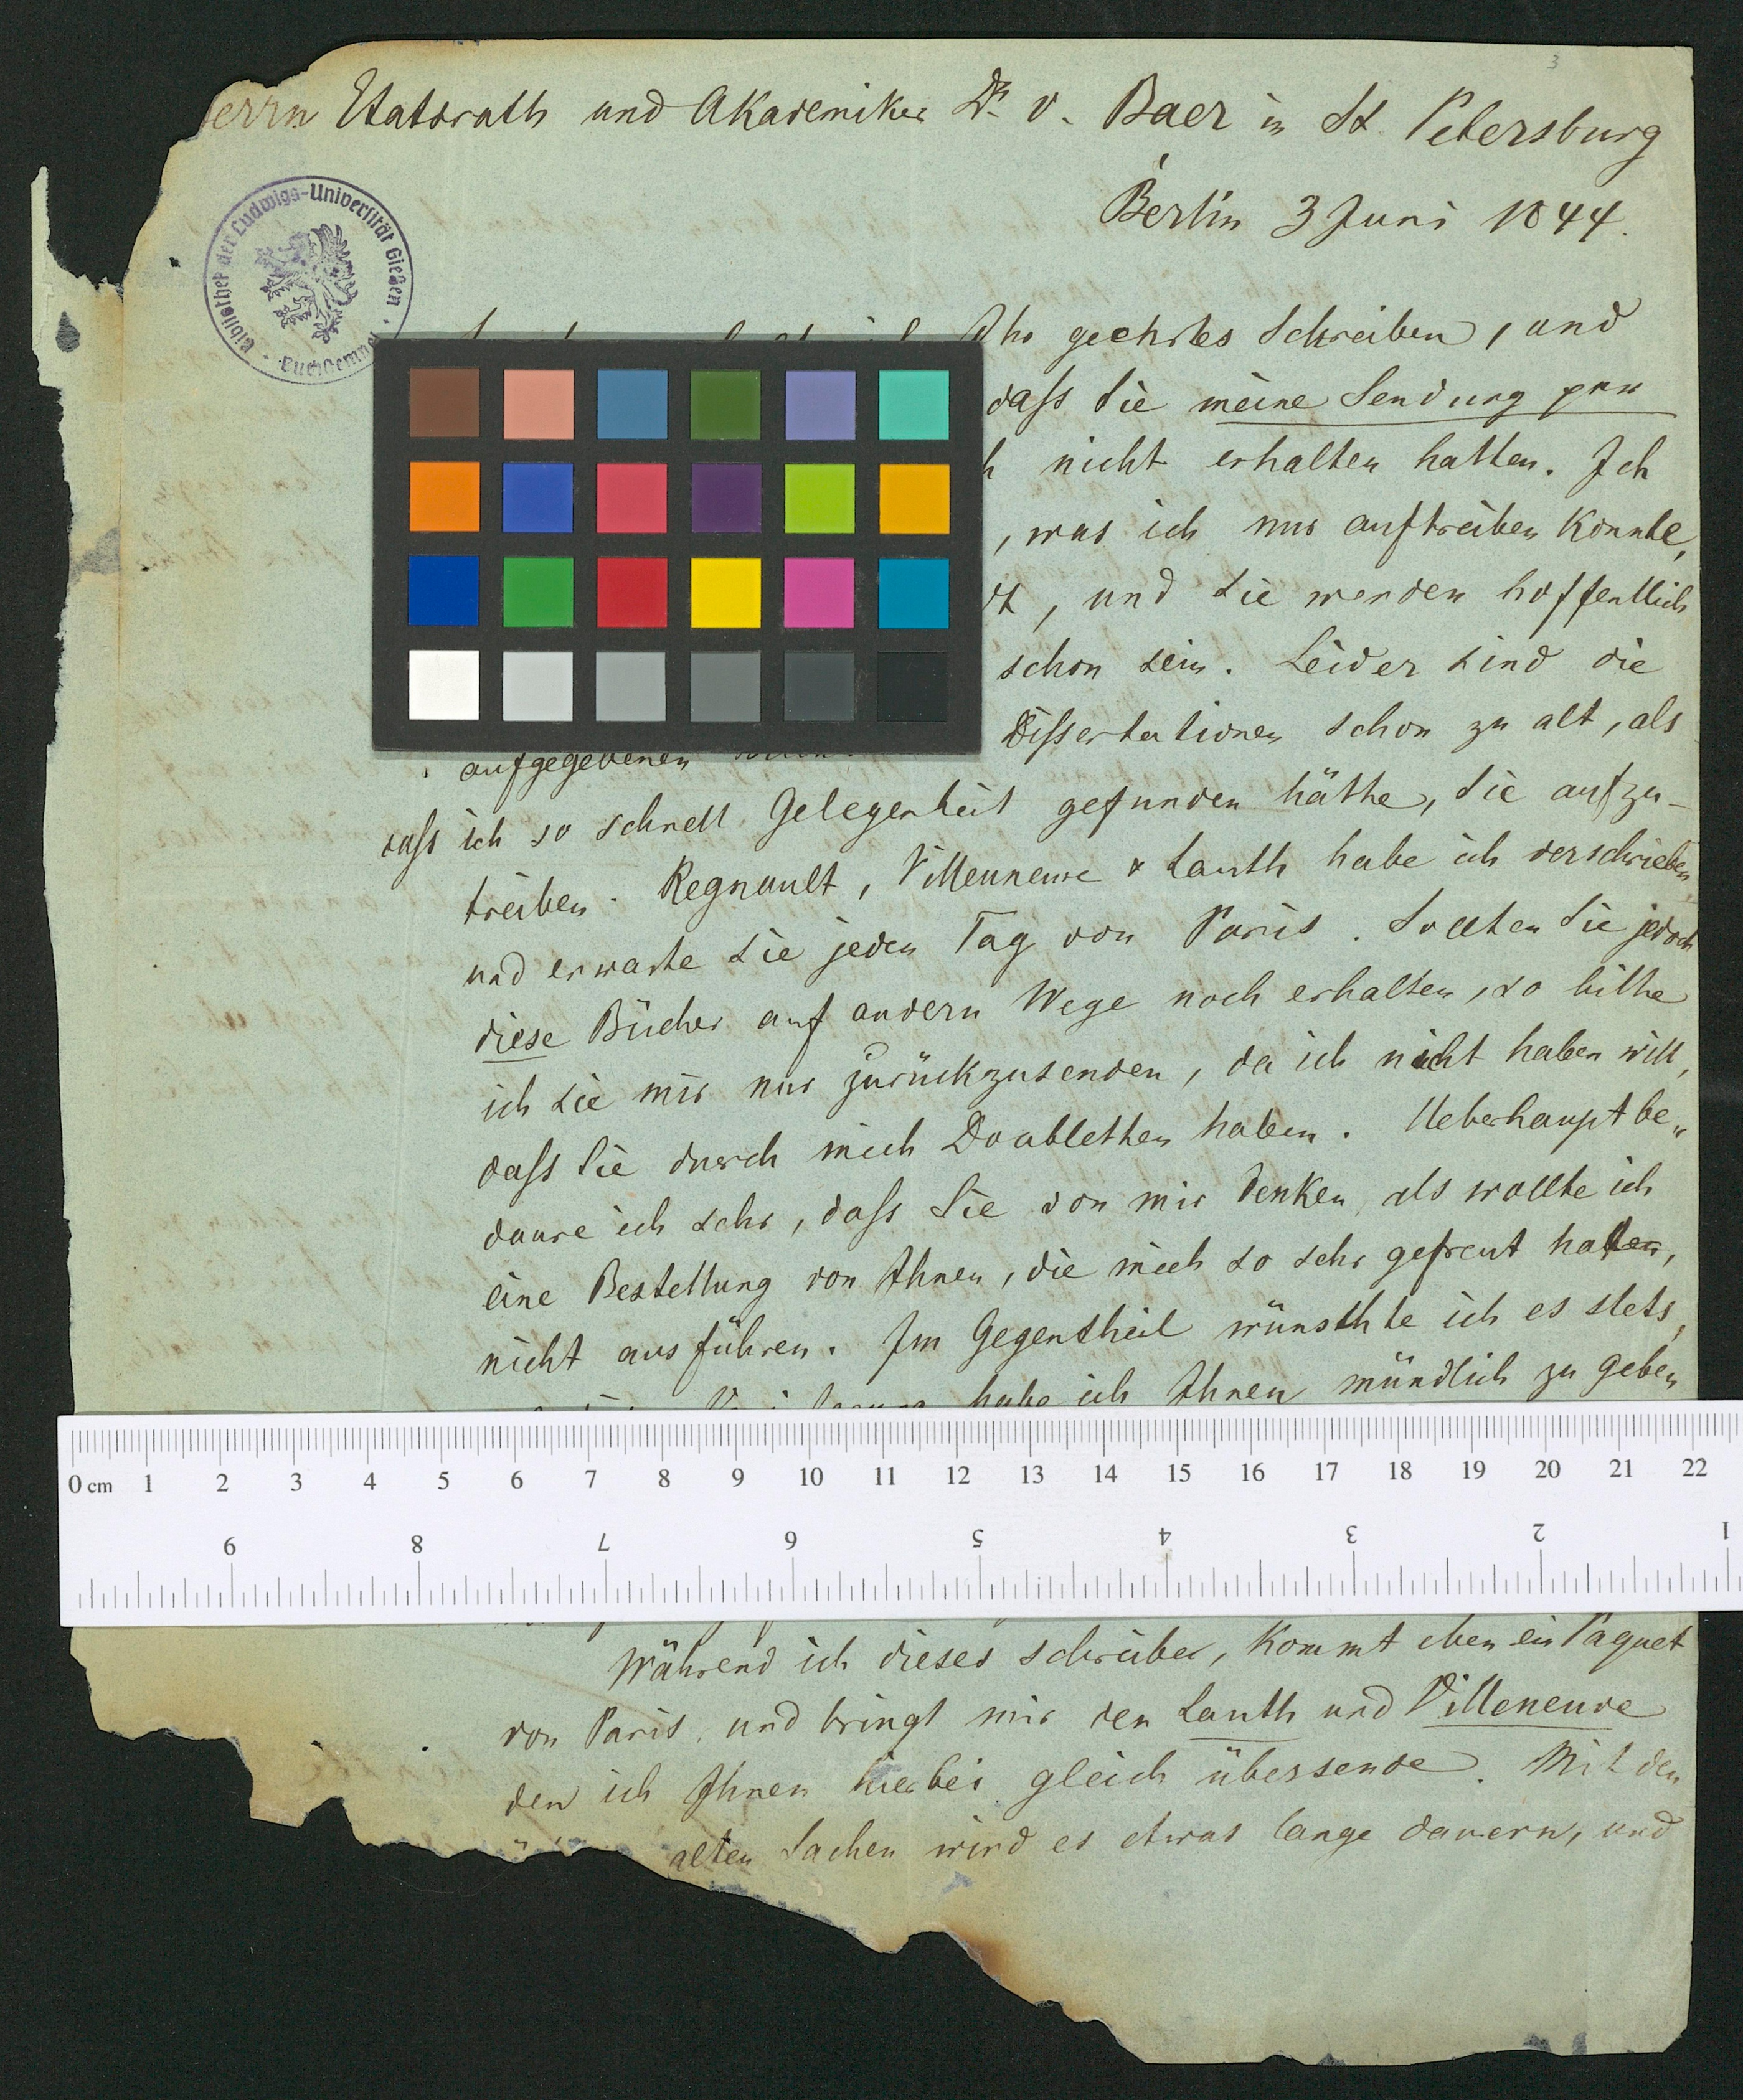 3
Herrn Etatsrath und Akademiker Dr. v. Baer in St. Petersburg
Berlin 3 Juni 1844.
Bibliothek der Ludwigs-Universität Gießen
Ihr geehrtes Schreiben, und
daſs Sie meine Sendung pr
nicht erhalten hatten. Ich
, was ich nur auftreiben konnte,
, und Sie werden hoffentlich
schon sein. Leider sind die
aufgegebenen Dissertationen schon zu alt, als
daſs ich so schnell Gelegenheit gefunden hätte, sie aufzu-
treiben. Regnault, Villeuneuve & Lauth habe ich verschrieben
und erwarte sie jeden Tag von Paris. Sollten Sie jedoch
diese Bücher auf andern Wege noch erhalten, so bitte
ich sie mir nur zurückzusenden, da ich nicht haben will,
daſs Sie durch mich Doubletten haben. Ueberhaupt be„
daure ich sehr, daſs Sie von mir denken, als wollte ich
eine Bestellung von Ihnen, die mich so sehr gefreut hatten,
nicht ausführen. Im Gegentheil wünschte ich es stets,
habe ich Ihnen mündlich zu geben
0 cm 1 2 3 4 5 6 7 8 9 10 11 12 13 14 15 16 17 18 19 20 21 22
9 8 7 6 5 4 3 2 1
Während ich dieses schreibe, kommt eben ein Paquet
von Paris, und bringt mir den Lauth und Villeneuve
den ich Ihnen hierbei gleich übersende. Mit den
alten Sachen wird es etwas lange dauern, und